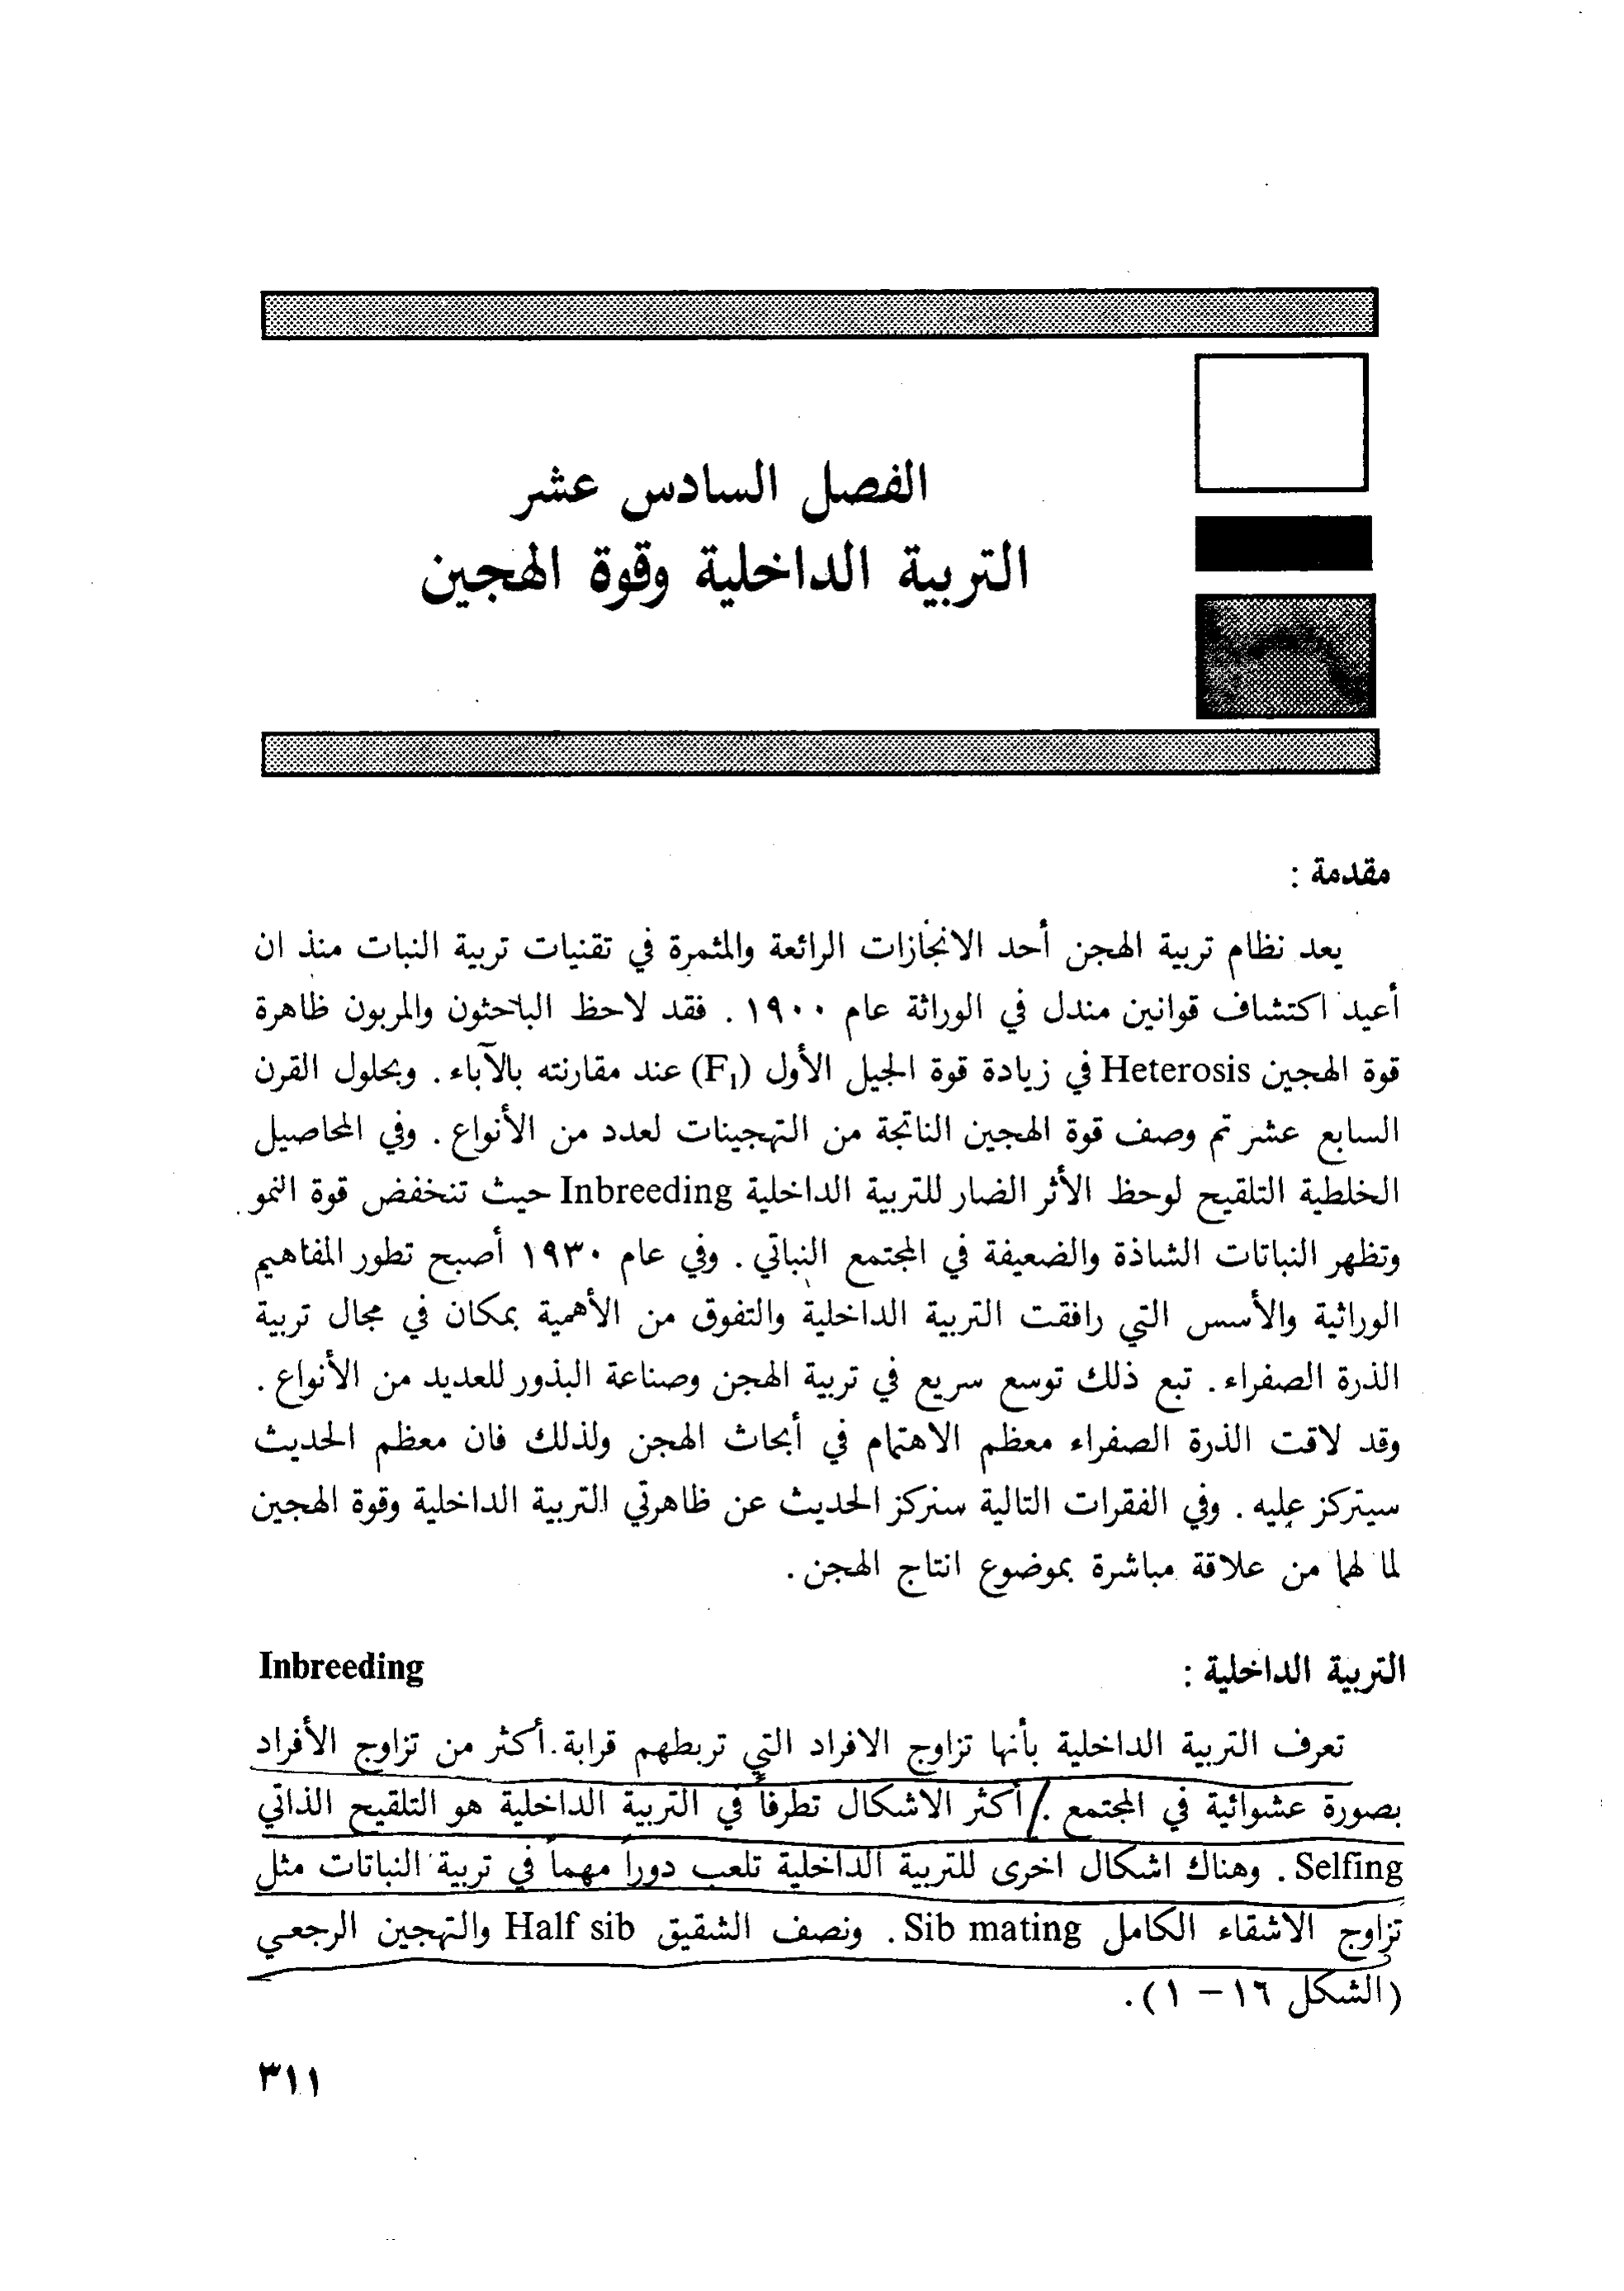 الفصل السادس عشر
التربية الداخلية وقوة الهجين
مقدمة :
يعد نظام تربية الهجن أحد الانجازات الرائعة والمثمرة في تقنيات تربية النبات منذ ان
أعيد اكتشاف قوانين مندل في الوراثة عام ١٩٠٠ . فقد لاحظ الباحثون والمربون ظاهرة
قوة الهجين Heterosis في زيادة قوة الجيل الأول (F₁) عند مقارنته بالآباء . وبحلول القرن
السابع عشر تم وصف قوة الهجين الناتجة من التهجينات لعدد من الأنواع . وفي المحاصيل
الخلطية التلقيح لوحظ الأثر الضار للتربية الداخلية Inbreeding حيث تنخفض قوة النمو
وتظهر النباتات الشاذة والضعيفة في المجتمع النباتي . وفي عام ١٩٣٠ أصبح تطور المفاهيم
الوراثية والأسس التي رافقت التربية الداخلية والتفوق من الأهمية بمكان في مجال تربية
الذرة الصفراء . تبع ذلك توسع سريع في تربية الهجن وصناعة البذور للعديد من الأنواع .
وقد لاقت الذرة الصفراء معظم الاهتمام في أبحاث الهجن ولذلك فان معظم الحديث
سيتركز عليه . وفي الفقرات التالية سنركز الحديث عن ظاهرتي التربية الداخلية وقوة الهجين
لما لهما من علاقة مباشرة بموضوع انتاج الهجن .
التربية الداخلية : Inbreeding
تعرف التربية الداخلية بأنها تزاوج الافراد التي تربطهم قرابة . أكثر من تزاوج الأفراد
بصورة عشوائية في المجتمع . / أكثر الاشكال تطرفاً في التربية الداخلية هو التلقيح الذاتي
Selfing . وهناك اشكال اخرى للتربية الداخلية تلعب دوراً مهماً في تربية النباتات مثل
تزاوج الاشقاء الكامل Sib mating . ونصف الشقيق Half sib والتهجين الرجعي
(الشكل ١٦ – ١) .
٣١١